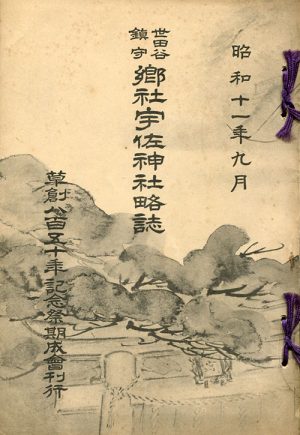 昭和十一年九月
世田谷
鎮守
郷社宇佐神社略誌
草創八百五十年記念祭期成會刊行